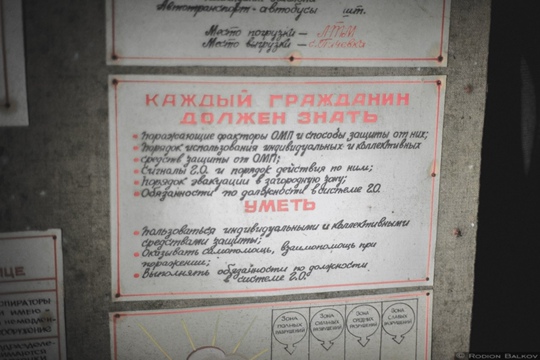 Автотранспорт - автобусы шт.
Место погрузки —
Место выгрузки —
КАЖДЫЙ ГРАЖДАНИН
ДОЛЖЕН ЗНАТЬ
Поражающие факторы ОМП и способы защиты от них;
Порядок использования индивидуальных и коллективных
средств защиты от ОМП;
Сигналы Г.О. и порядок действия по ним;
Порядок эвакуации в загородную зону;
Обязанности по должности в системе Г.О.
УМЕТЬ
Пользоваться индивидуальными и коллективными
средствами защиты;
Оказывать самопомощь, взаимопомощь при
поражении;
Выполнять обязанности по должности
в системе Г.О.
ЗОНА ПОЛНЫХ РАЗРУШЕНИЙ
ЗОНА СИЛЬНЫХ РАЗРУШЕНИЙ
ЗОНА СРЕДНИХ РАЗРУШЕНИЙ
ЗОНА СЛАБЫХ РАЗРУШЕНИЙ
© RODION BALKOV